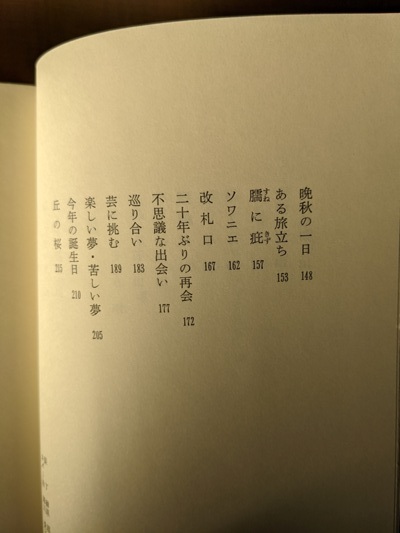 晩秋の一日 148
ある旅立ち 153
臑に疵 157
すね
きず
ソワニエ 162
改札口 167
二十年ぶりの再会 172
不思議な出会い 177
巡り合い 183
芸に挑む 189
楽しい夢・苦しい夢 205
今年の誕生日 210
丘の桜 215